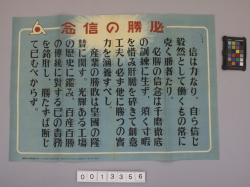 必勝の信念
一、信は力なり、自ら信じ
毅然として働くもの常に
克く勝者たり。
一、必勝の信念は千磨徹底
の訓練に生ず、須く寸暇
を惜み肝膽を砕きて創意
工夫し必ず他に勝つの實
力を涵養すべし。
一、産業の勝敗は皇國の隆
替に關す、光輝ある工場
の歴史に鑑み、百戦百勝
の傳統に對する己の責務
を銘肝し、勝たずば断じ
て已むべからず。
0013356